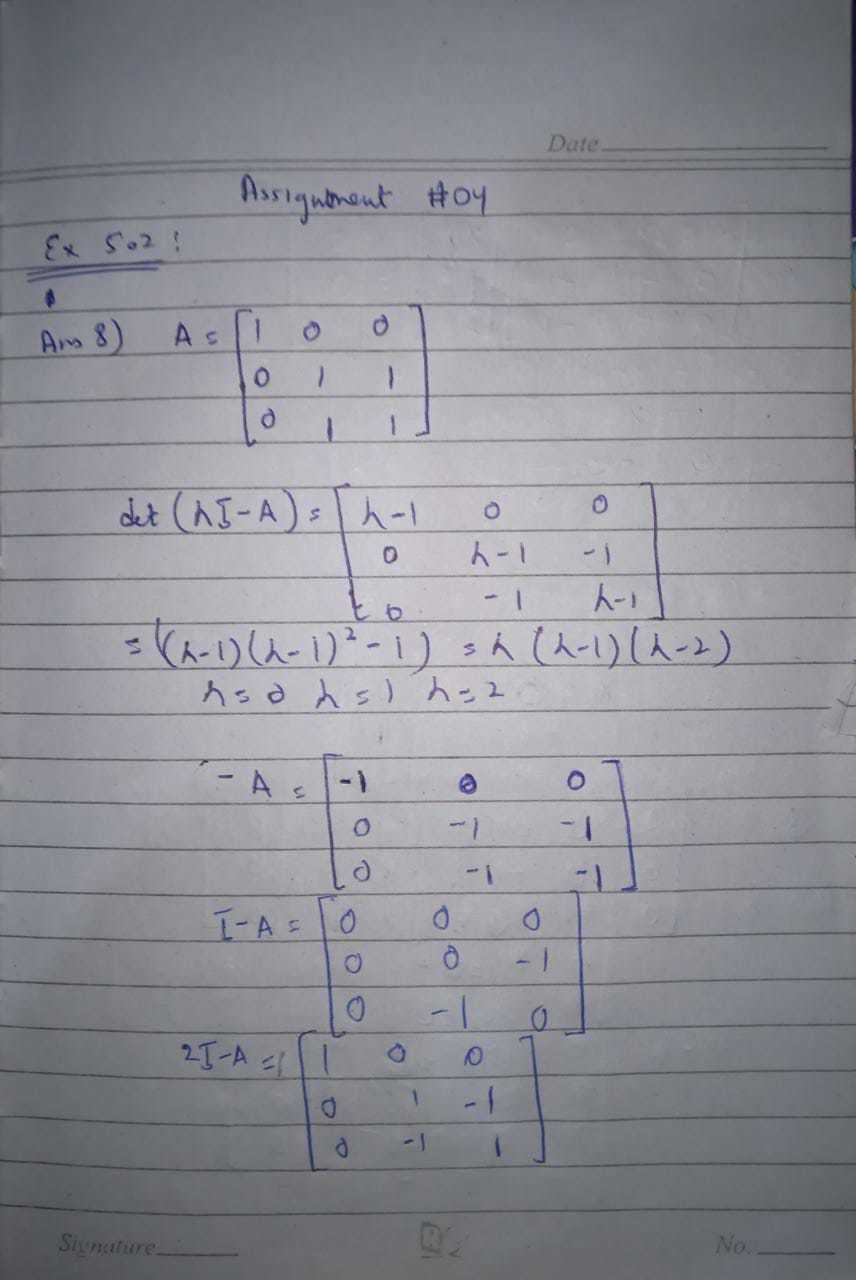 Date
Assignment #04
Ex 5.2 :
Ans 8) A = [1 0 0
0 1 1
0 1 1]
det (λI-A) = [λ-1 0 0
0 λ-1 -1
0 -1 λ-1]
= ((λ-1)(λ-1)²-1) = λ (λ-1)(λ-2)
λ=0 λ=1 λ=2
-A = [-1 0 0
0 -1 -1
0 -1 -1]
I-A = [0 0 0
0 0 -1
0 -1 0]
2I-A = [1 0 0
0 1 -1
0 -1 1]
Signature No.